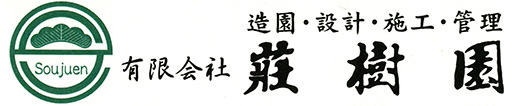 Soujuen
造園・設計・施工・管理
有限会社 莊樹園